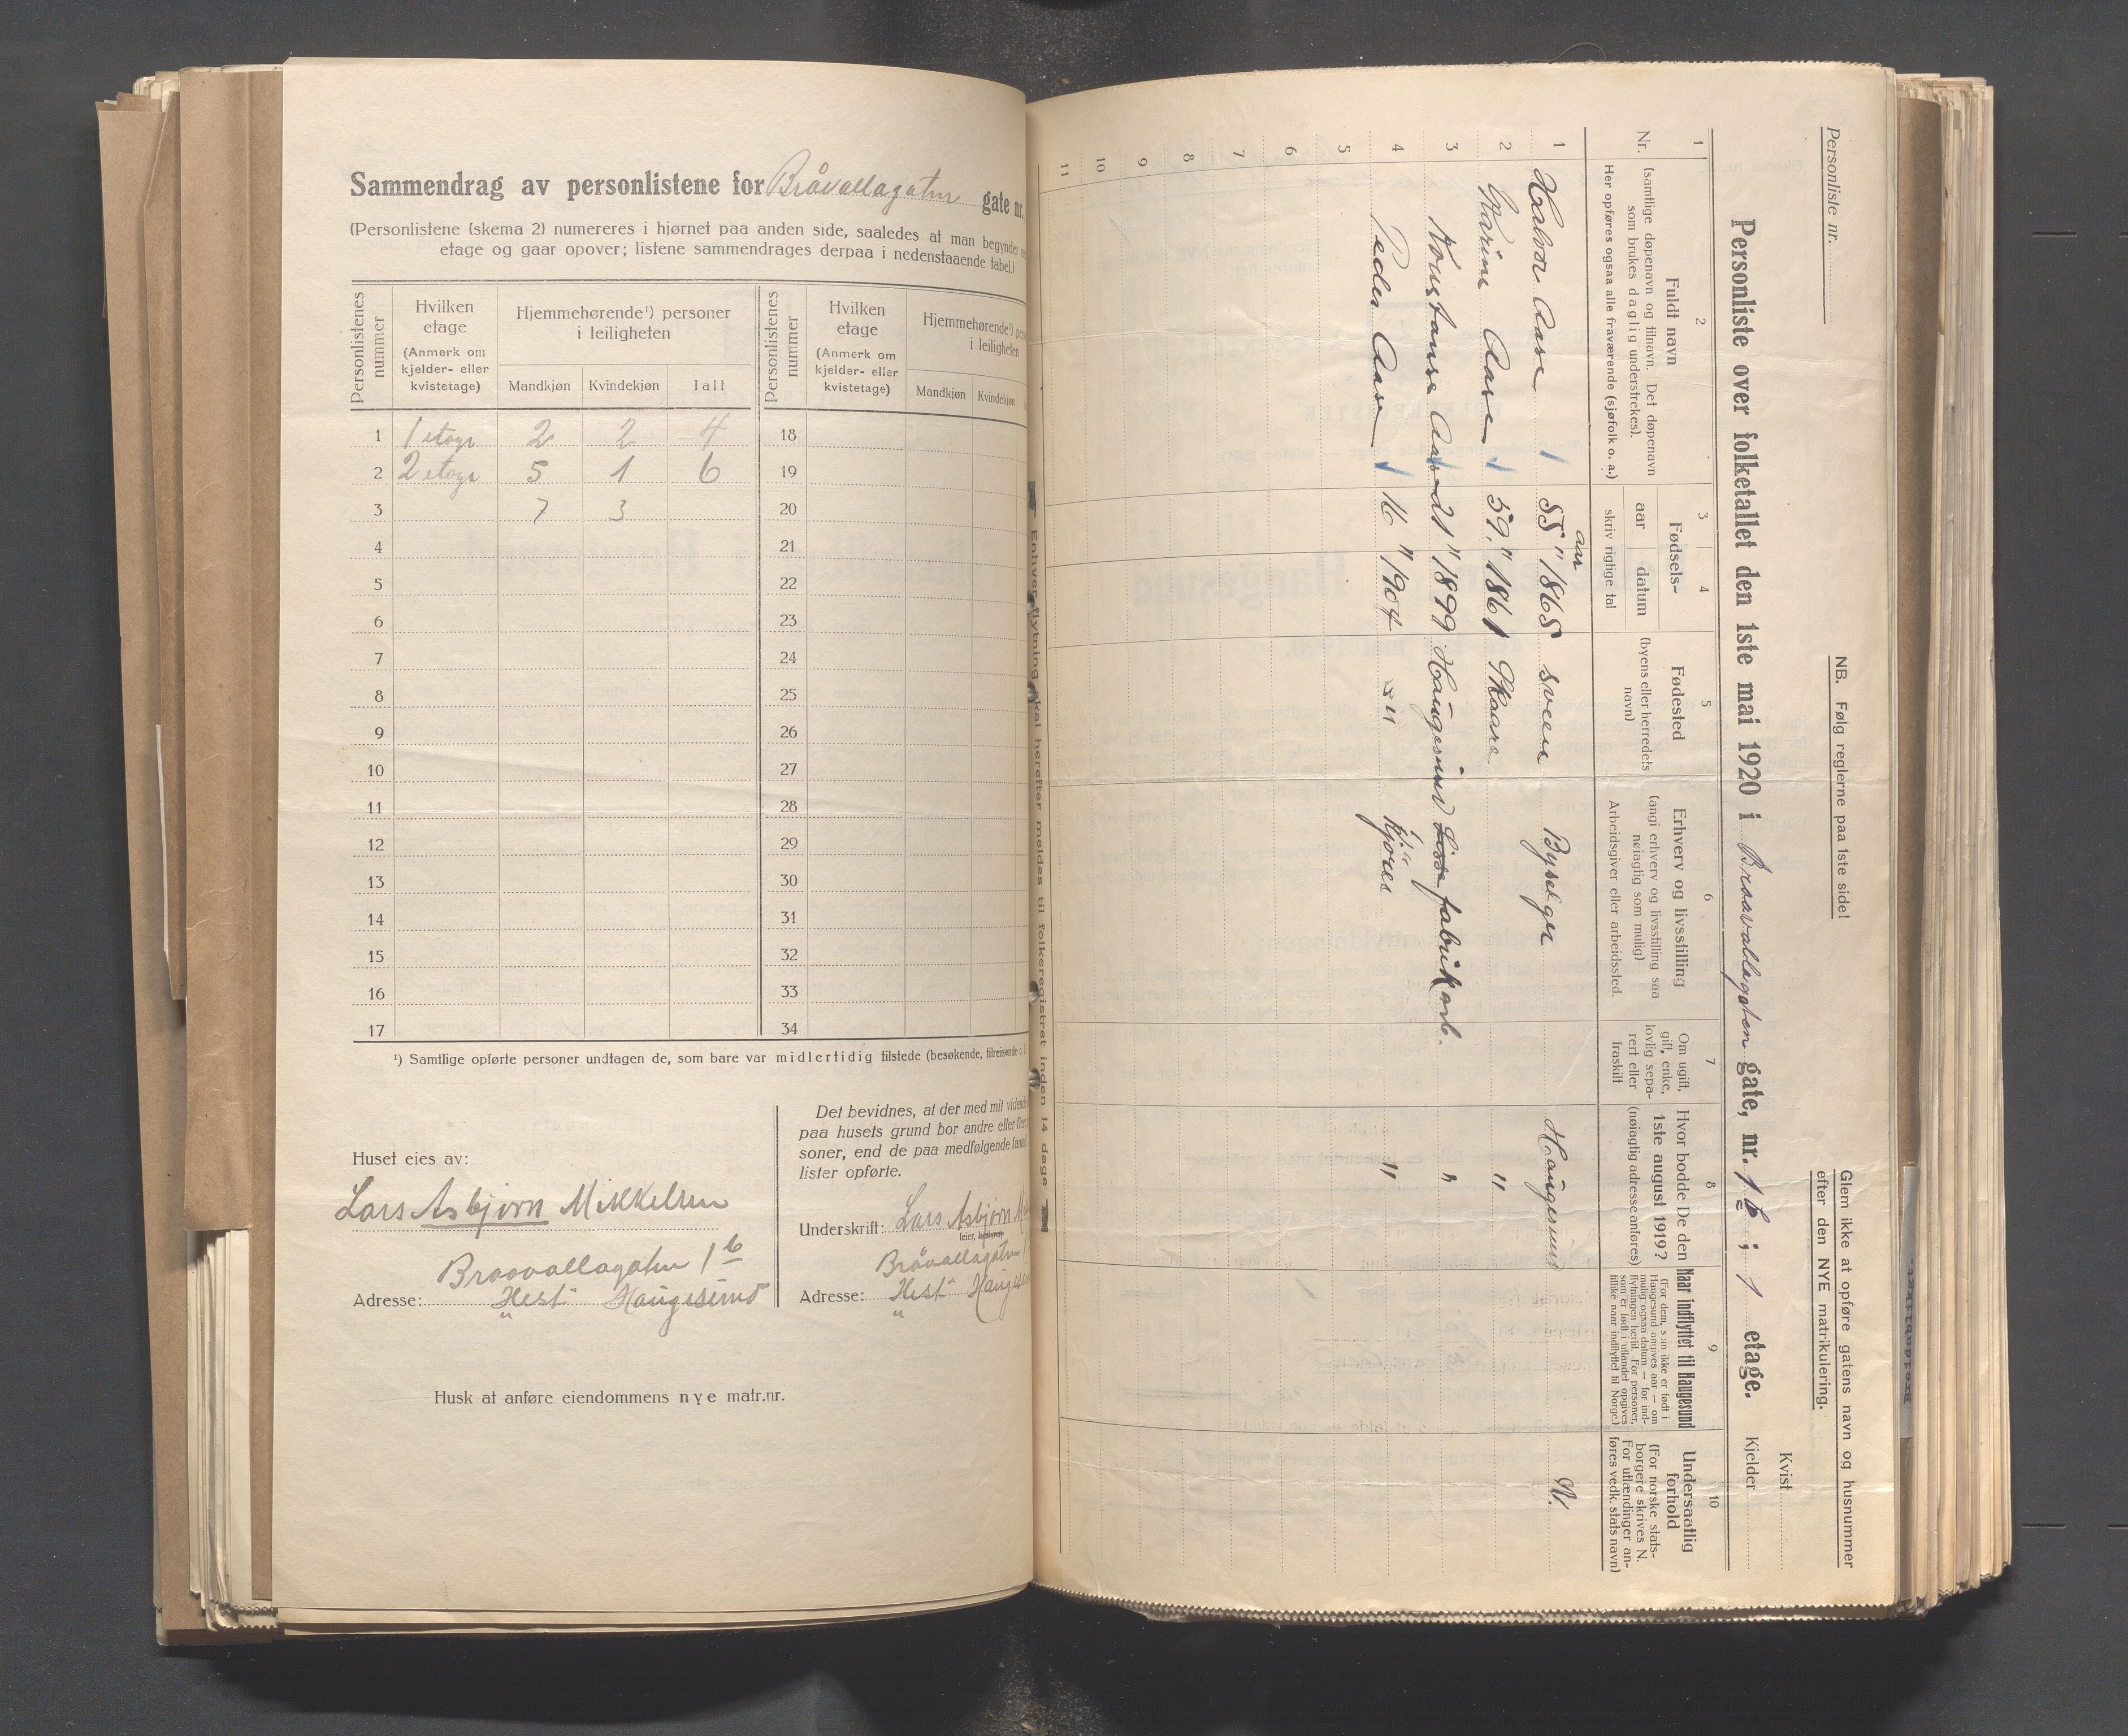 Sammendrag av personlistene for Bråvallagatur gate nr.
(Personlistene (skema 2) numereres i hjørnet paa anden side, saaledes at man begynder
etage og gaar opover; listene sammendrages derpaa i nedenstaaende tabel.)
Personlistenes nummer
Hvilken etage
(Anmerk om kjelder- eller kvistetage)
Hjemmehørende¹) personer i leiligheten
Mandkjøn Kvindekjøn Ialt
Personlistenes nummer
Hvilken etage
(Anmerk om kjelder- eller kvistetage)
Hjemmehørende¹)
i leiligheten
Mandkjøn Kvindekjøn
1 1 etage 2 2 4 18
2 2 etage 5 1 6 19
3 7 3 20
4 21
5 22
6 23
7 24
8 25
9 26
10 27
11 28
12 29
13 30
14 31
15 32
16 33
17 34
¹) Samtlige opførte personer undtagen de, som bare var midlertidig tilstede (besøkende, tilreisende
Huset eies av:
Lars Asbjørn Mikkelsen
Braavallagaten 1 b
Adresse: Hest Haugesund
Det bevidnes, at der med mit vidende
paa husets grund bor andre eller flere
soner, end de paa medfølgende
lister opførte.
Underskrift: Lars Asbjørn
(eier, bestyrer
Bråvallagaten
Adresse: Hest
Husk at anføre eiendommens nye matr.nr.
Enhver flytning skal herefter meldes til folkeregistret inden 14 dage
Personliste nr.
NB. Følg reglerne paa 1ste side!
Glem ikke at opføre gatens navn og husnummer
efter den NYE matrikulering.
Kvist
Personliste over folketallet den 1ste mai 1920 i Braavallagaten gate, nr. 1 b; 1 etage.
Kjelder
1 2 3 4 5 6 7 8 9 10
Nr.
Fuldt navn
(samtlige døpenavn og tilnavn. Det døpenavn
som brukes daglig understrekes).
Her opføres ogsaa alle fraværende (sjøfolk o. a.)
Fødsels-
aar datum
skriv rigtige tal
Fødested
(byens eller herredets
navn)
Erhverv og livsstilling
(angi erhverv og livsstilling saa
nøiagtig som mulig)
Arbeidsgiver eller arbeidssted.
Om ugift,
gift, enke,
lovlig sepa-
rert eller
fraskilt
Hvor bodde De den
1ste august 1919?
(nøiagtig adresse anføres)
Naar indflyttet til Haugesund
(For dem, som ikke er født i
Haugesund angives aar — om
mulig ogsaa datum — for ind-
flytningen hertil. For personer,
som er født i utlandet opgives
tillike naar indflyttet til Norge)
Undersaatlig
forhold
(For norske stats-
borgere skrives N.
For utlændinger an-
føres vedk. stats navn)
aar
1 Halvor Aase 55 " 1865 Sveen Bysælger Haugesund N.
2 Karine Aase 59 " 1861 Skaare "
3 Konstanse Aase 21 " 1899 Haugesund fabrikarb. "
4 Peder Aase 16 " 1904 " Kjøres "
5
6
7
8
9
10
11